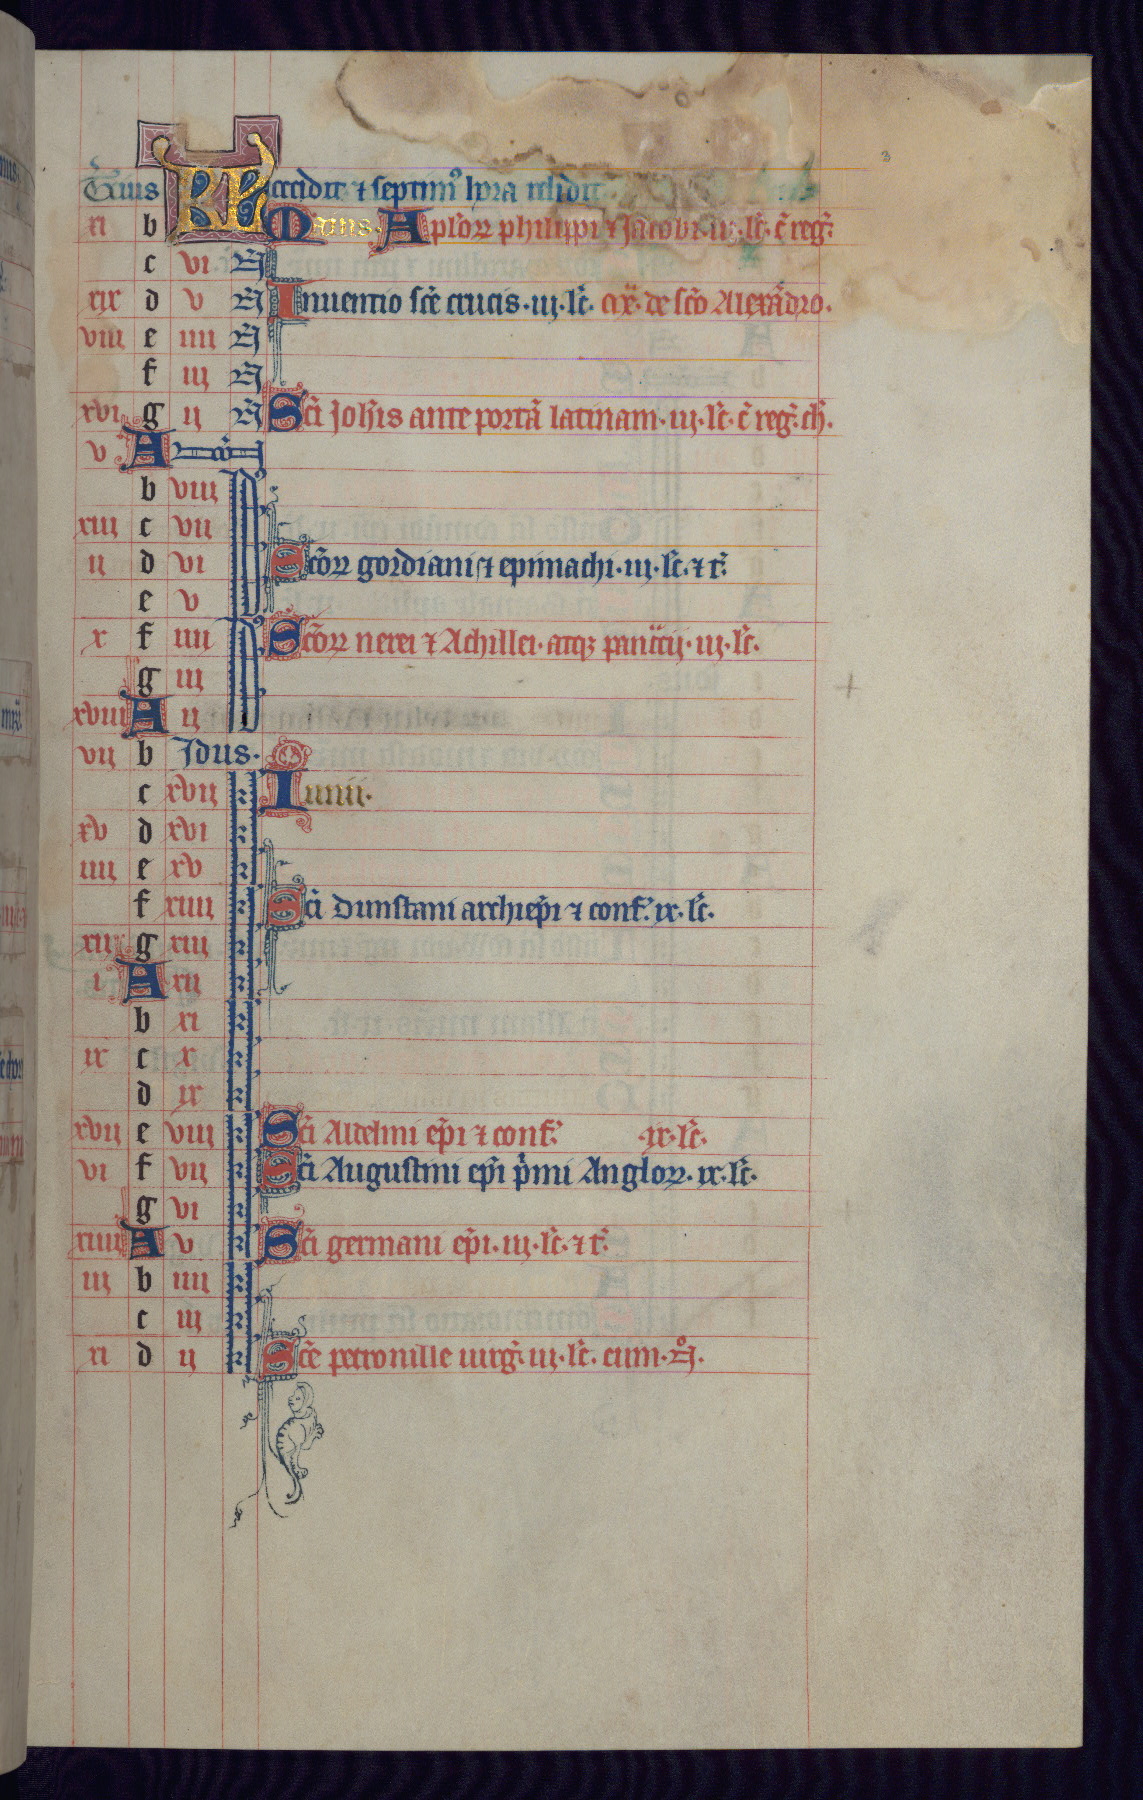 3
Tcius KL occidit ⁊ septim9 hora relidit
xi b Maius. Aplorꝝ philippi ⁊ Jacobi. iii. lc̄. c̄ reg̃.
c vi N
xix d v N Inuentio sc̄e crucis. iii. lc̄. de sc̄o Alexādro.
viii e iiii N
f iii N
xvi g ii N Sc̄i Joh̄is ante portā latinam. iii. lc̄. c̄ reg̃. ch̄.
v A
b viii Id
xiii c vii
ii d vi Sc̄orꝝ gordiani ⁊ epimachi. iii. lc̄. ⁊ t̃.
e v
x f iiii Id Sc̄orꝝ nerei ⁊ Achillei. atqꝫ panc̃cij. iii. lc̄.
g iii
xviii A ii
vii b Idus.
c xvii kl Iunii.
xv d xvi kl
iiii e xv kl
f xiiii kl Sc̄i Dunstani archiep̄i ⁊ conf̃. ix. lc̄.
xii g xiii kl
i A xii kl
b xi kl
ix c x kl
d ix kl
xvii e viii kl Sc̄i Aldelmi ep̄i ⁊ conf̃. .ix. lc̄.
vi f vii kl Sc̄i Augustini ep̄i p̄mi Anglorꝝ. ix. lc̄.
g vi kl
xiiii A v kl Sc̄i germani ep̄i. iii. lc̄. ⁊ t̃.
iii b iiii kl
c iii kl
xi d ii kl Sc̄e petronille uirg̃. iii. lc̄. cum.